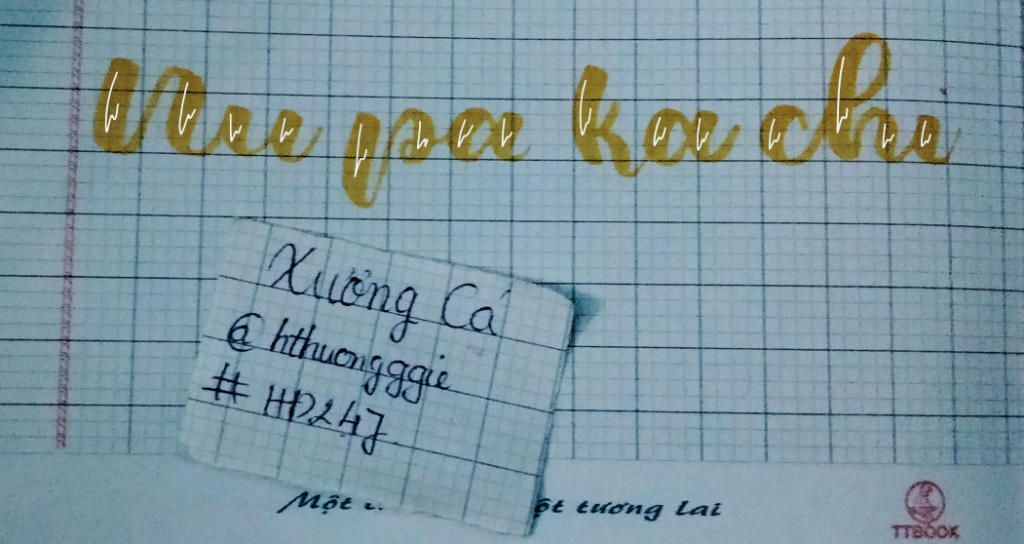 pa ka chi
Xương Cá
@ hthuongggie
# HD247
Một ột tương lai
TTBOOK